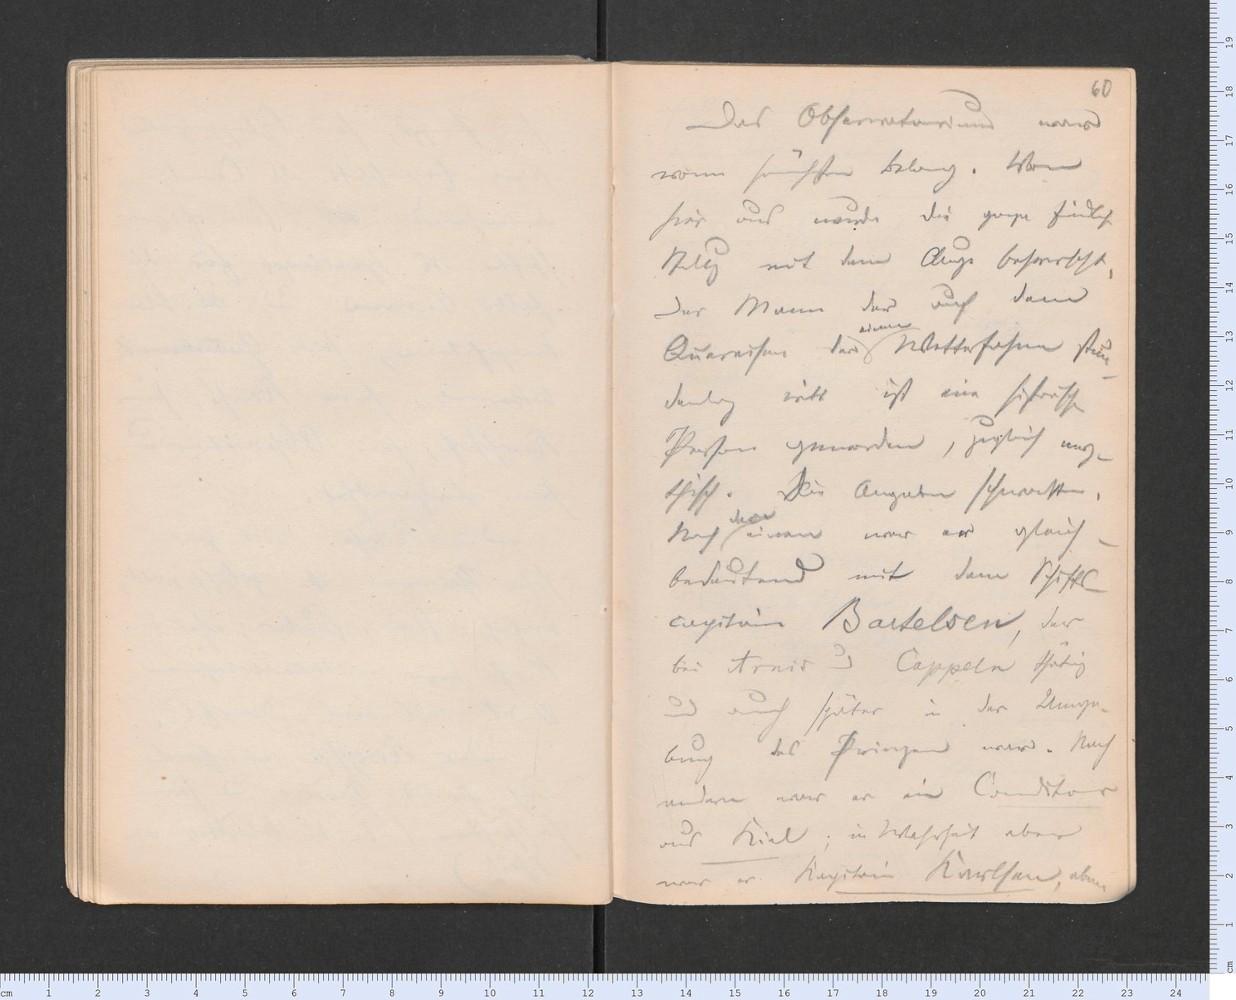 60
Das Observatorium war
vom höchsten Belang. Von
hier aus wurde die ganze feindliche
Stellg mit dem Auge beherrscht,
Der Mann der auf dem
Querreisen der einen Wetterfahne stun-
denlang ritt ist eine historische
Person geworden, zugleich my-
thisch. Die Angaben schwanken.
Nach den einen war er gleich-
bedeutend mit dem Schiffs-
capitain Bartelsen, der
bei Arnis u Cappeln thätig
und auch später in der Umge-
bung des Prinzen war. Nach
andern war er ein Conditor
aus Kiel; in Wahrheit aber
war er Kapitain Karlsen, eben